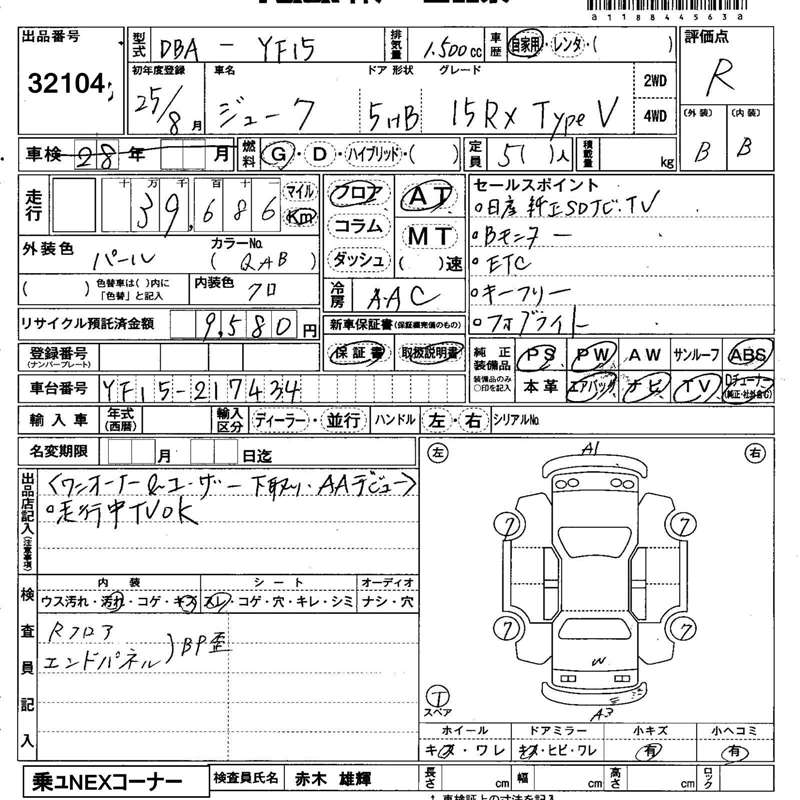 a1188445563a
出品番号
32104
型式 DBA - YF15
排気量 1.500 cc
車歴 自家用・レンタ・( )
評価点
R
初年度登録 車名 ドア 形状 グレード
25/8 月 ジューク 5HB 15RX Type V
2WD
4WD
(外装) (内装)
B B
車検 28 年 月
燃料 G・D・ハイブリッド・( )
定員 5( )人
積載量 kg
走行 十 万 千 百 十
39,686
マイル
Km
フロア
コラム
ダッシュ
AT
MT
( )速
セールスポイント
○日産純正SDナビ.TV
○Bモニター
○ETC
○キーフリー
○フォグライト
外装色 パール
カラーNo.
( QAB )
( ) 色替車は( )内に「色替」と記入
内装色 クロ
冷房 AAC
リサイクル預託済金額 9,580 円
新車保証書(保証継続完備のもの)
保証書 取扱説明書
登録番号
(ナンバープレート)
純正装備品
装備品のみ○印を記入
PS PW AW サンルーフ ABS
本革 エアバッグ ナビ TV Dチューナー
(純正・社外含む)
車台番号 YF15-217434
輸入車 年式(西暦) 輸入区分 ディーラー・並行 ハンドル 左・右 シリアルNo.
名変期限 月 日迄
出品店記入(注意事項)
<ワンオーナー&ユーザー下取り.AAデビュー>
○走行中TVOK
左 右
A1
7 7
7 7
W
A3
T
スペア
検査員記入
内装 シート オーディオ
ウス汚れ・汚れ・コゲ・キズ スレ・コゲ・穴・キレ・シミ ナシ・穴
Rフロア
エンドパネル ) BP歪
ホイール ドアミラー 小キズ 小ヘコミ
キズ・ワレ キズ・ヒビ・ワレ 有 有
乗ュNEXコーナー
検査員氏名 赤木 雄輝
長さ cm 幅 cm 高さ cm ロック
↑車検証上の寸法を記入